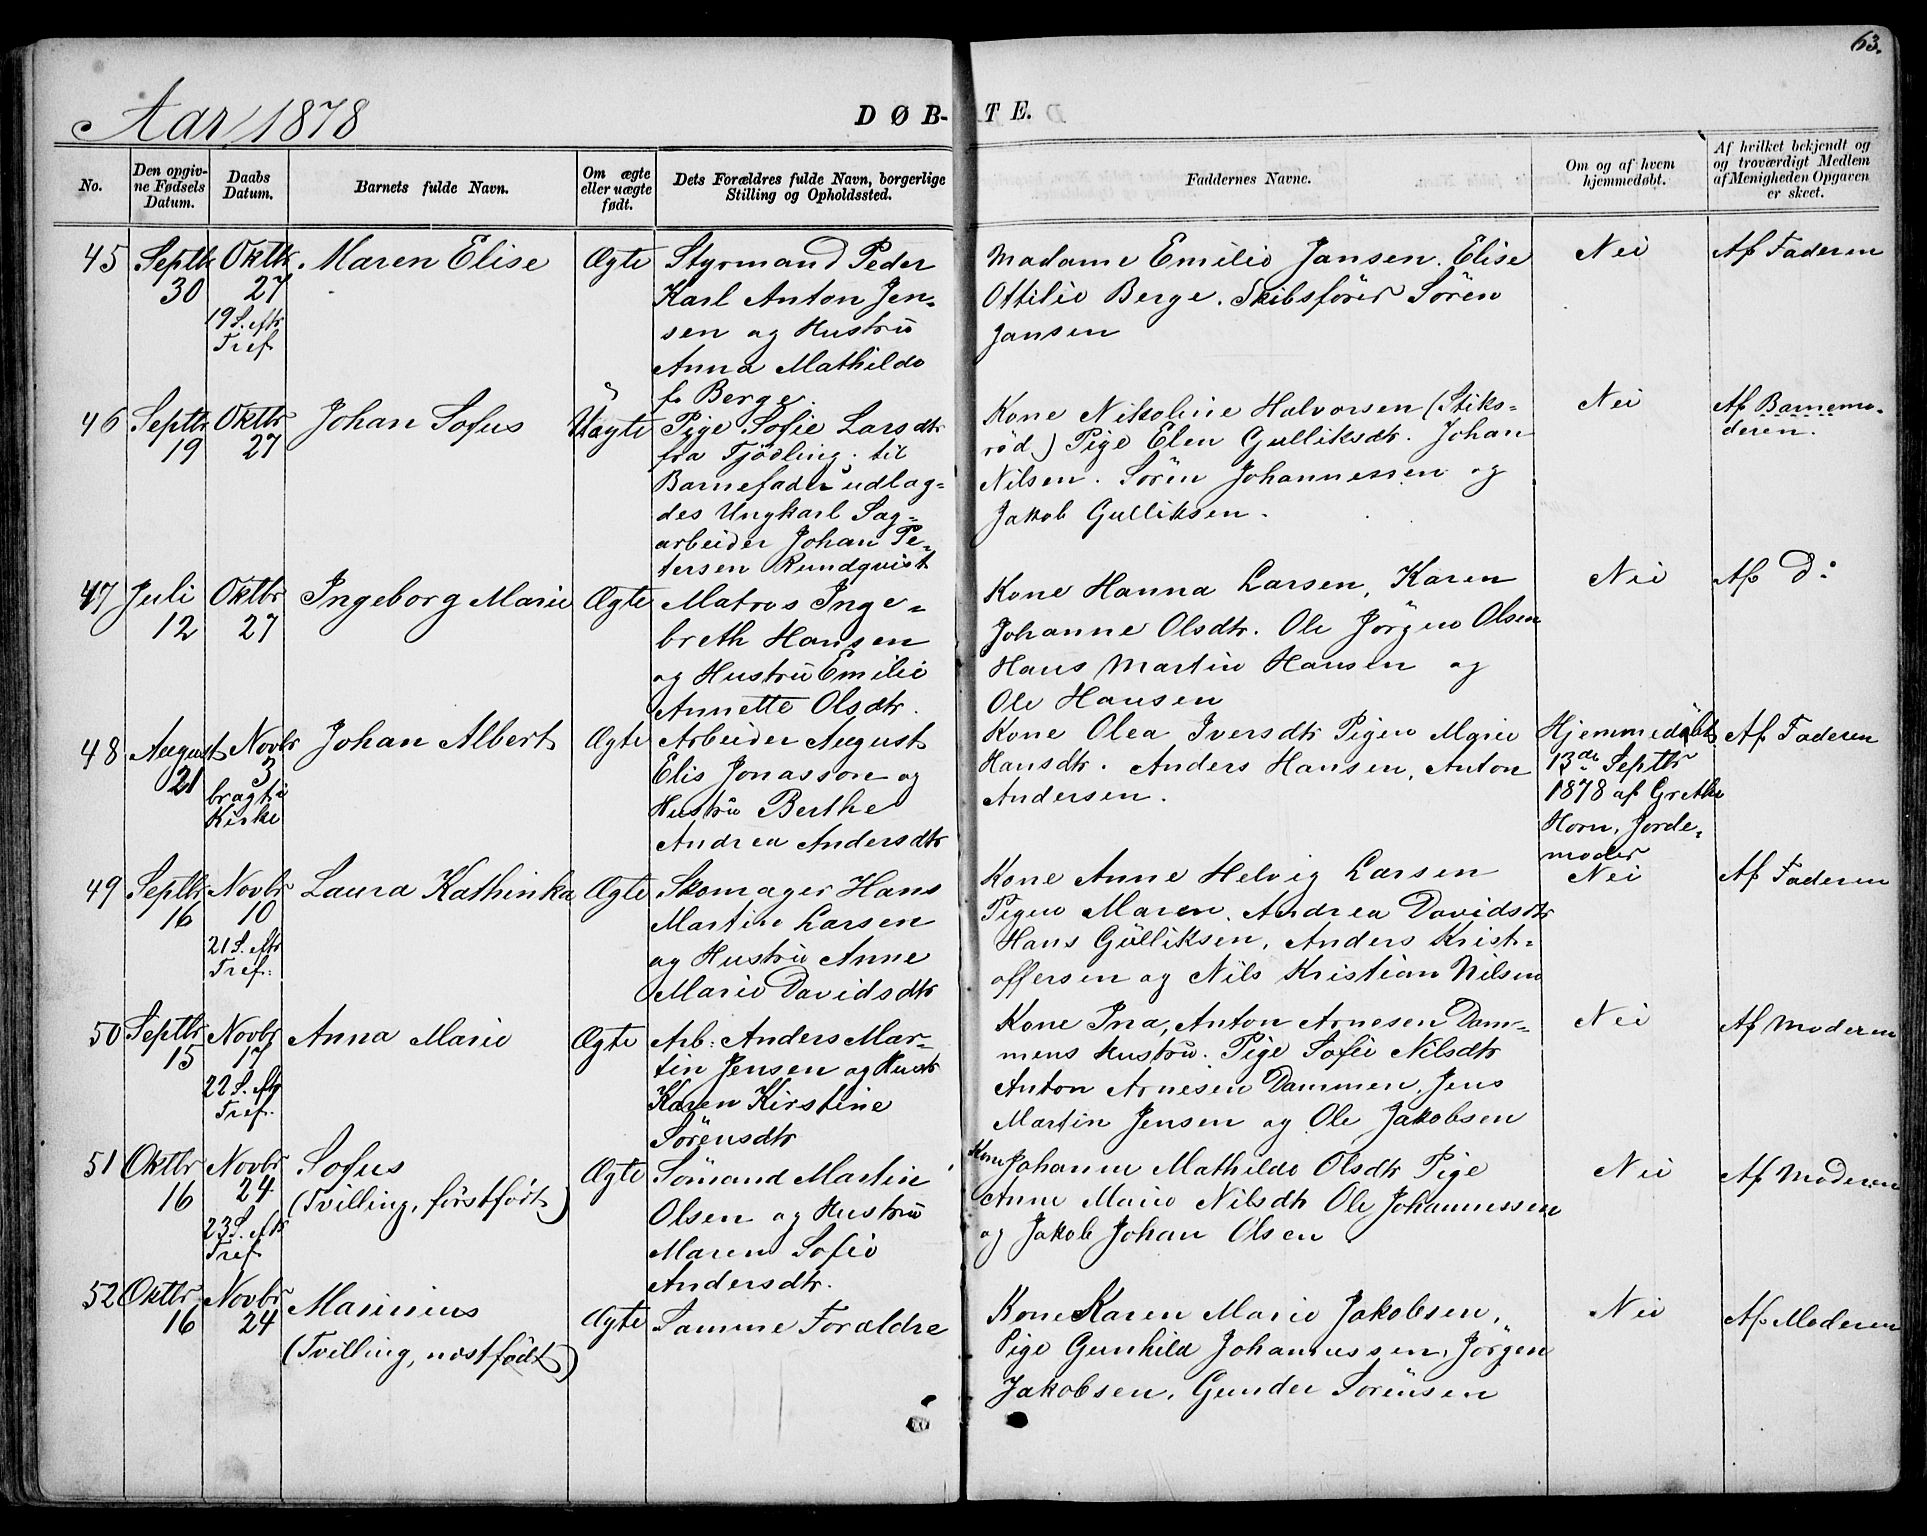 63.
Aar 1878
DØB-
TE.
No.
Den opgiv-
ne Fødsels
Datum.
Daabs
Datum.
Barnets fulde Navn.
Om ægte
eller uægte
født.
Dets Forældres fulde Navn, borgerlige
Stilling og Opholdssted.
Faddernes Navne.
Om og af hvem
hjemmedøbt.
Af hvilket bekjendt og
og troværdigt Medlem
af Menigheden Opgaven
er skeet.
45 Septbr Oktbr Maren Elise Ægte Styrmand Peder
30 27 Karl Anton Jen-
19 S. eftr sen og Hustru
Tref. Anna Mathilde
f. Berge.
Madame Emilie Jansen. Elise
Ottilie Berge. Skibsfører Sören
Jansen
Nei
Af Faderen
46 Septbr Oktbr Johan Sofus Uægte Pige Sofie Larsdtr
19 27 fra Tjödling. til
Barnefader udlag-
des Ungkarl Sag-
arbeider Johan Pe-
tersen Rundqvist
Kone Nikoline Halvorsen (Stiks-
röd) Pige Elen Gulliksdtr. Johan
Nilsen. Sören Johannessen og
Jakob Gulliksen.
Nei
Af Barnemo-
deren.
47 Juli Oktbr Ingeborg Marie Ægte Matros Inge-
12 27 breth Hansen
og Hustru Emilie
Annette Olsdtr.
Kone Hanna Larsen, Karen
Johanne Olsdtr. Ole Jörgen Olsen
Hans Martin Hansen og
Ole Hansen
Nei
Af Do
48 August Novbr Johan Albert Ægte Arbeider August
21 3 Elis Jonasson og
bragt i Hustru Berthe
Kirke Andrea Andersdtr
Kone Olea Iversdtr Pigen Marie
Hansdtr. Anders Hansen, Anton
Andersen.
Hjemmedöbt
13de Septbr
1878 af Grethe
Horn, Jorde-
moder
Af Faderen
49 Septbr Novbr Laura Kathinka Ægte Skomager Hans
16 10 Martin Larsen
21 S. eftr og Hustru Anne
Tref. Marie Davidsdtr
Kone Anne Helvig Larsen
Pigen Maren Andrea Davidsdtr
Hans Gulliksen, Anders Krist-
offersen og Nils Kristian Nilsen
Nei
Af Faderen
50 Septbr Novbr Anna Marie Ægte Arb: Anders Mar-
15 17 tin Jensen og Hustr
22 S. eftr Karen Kirstine
Tref. Sörensdtr
Kone Ina, Anton Arnesen Dam-
mens Hustru. Pige Sofie Nilsdtr
Anton Arnesen Dammen, Jens
Martin Jensen og Ole Jakobsen
Nei
Af Moderen
51 Oktbr Novbr Sofus Ægte Sömand Martin
16 24 (Tvilling, förstfödt) Olsen og Hustru
23 S. eftr Maren Sofie
Tref. Andersdtr.
Kone Johanne Mathilde Olsdtr Pige
Anne Marie Nilsdtr Ole Johannessen
og Jakob Johan Olsen
Nei
Af Moderen
52 Oktbr Novbr Marinius Ægte Samme Forældre
16 24 (Tvilling, næstfödt)
Kone Karen Marie Jakobsen,
Pige Gunhild Johannessen, Jörgen
Jakobsen, Gunder Sörensen
Nei
Af Moderen